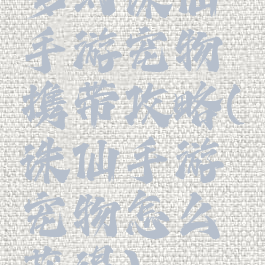 诛仙
手游宠物
携带攻略(
诛仙手游
宠物怎么